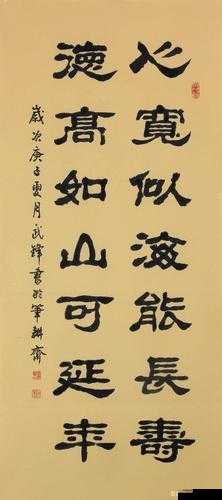 心寬似海能長壽
德高如山可延年
歲次庚子夏月武鋒書於筆耕齋